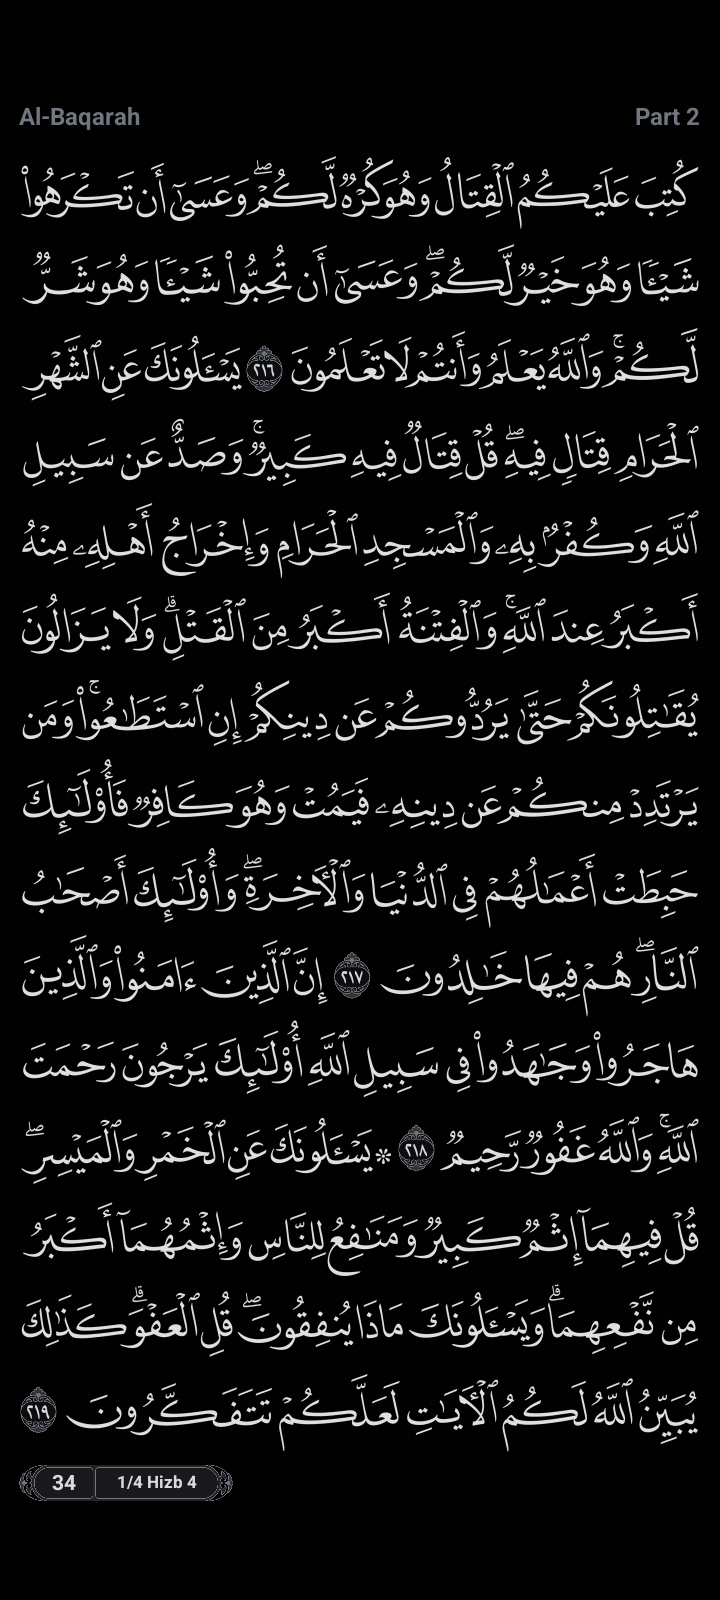 Al-Baqarah Part 2
كُتِبَ عَلَيْكُمُ ٱلْقِتَالُ وَهُوَ كُرْهٌ لَّكُمْ ۖ وَعَسَىٰٓ أَن تَكْرَهُوا۟
شَيْـًٔا وَهُوَ خَيْرٌ لَّكُمْ ۖ وَعَسَىٰٓ أَن تُحِبُّوا۟ شَيْـًٔا وَهُوَ شَرٌّ
لَّكُمْ ۚ وَٱللَّهُ يَعْلَمُ وَأَنتُمْ لَا تَعْلَمُونَ ٢١٦ يَسْـَٔلُونَكَ عَنِ ٱلشَّهْرِ
ٱلْحَرَامِ قِتَالٍ فِيهِ ۖ قُلْ قِتَالٌ فِيهِ كَبِيرٌ ۚ وَصَدٌّ عَن سَبِيلِ
ٱللَّهِ وَكُفْرٌۢ بِهِۦ وَٱلْمَسْجِدِ ٱلْحَرَامِ وَإِخْرَاجُ أَهْلِهِۦ مِنْهُ
أَكْبَرُ عِندَ ٱللَّهِ ۚ وَٱلْفِتْنَةُ أَكْبَرُ مِنَ ٱلْقَتْلِ ۗ وَلَا يَزَالُونَ
يُقَـٰتِلُونَكُمْ حَتَّىٰ يَرُدُّوكُمْ عَن دِينِكُمْ إِنِ ٱسْتَطَـٰعُوا۟ ۚ وَمَن
يَرْتَدِدْ مِنكُمْ عَن دِينِهِۦ فَيَمُتْ وَهُوَ كَافِرٌ فَأُو۟لَـٰٓئِكَ
حَبِطَتْ أَعْمَـٰلُهُمْ فِى ٱلدُّنْيَا وَٱلْـَٔاخِرَةِ ۖ وَأُو۟لَـٰٓئِكَ أَصْحَـٰبُ
ٱلنَّارِ ۖ هُمْ فِيهَا خَـٰلِدُونَ ٢١٧ إِنَّ ٱلَّذِينَ ءَامَنُوا۟ وَٱلَّذِينَ
هَاجَرُوا۟ وَجَـٰهَدُوا۟ فِى سَبِيلِ ٱللَّهِ أُو۟لَـٰٓئِكَ يَرْجُونَ رَحْمَتَ
ٱللَّهِ ۚ وَٱللَّهُ غَفُورٌ رَّحِيمٌ ٢١٨ * يَسْـَٔلُونَكَ عَنِ ٱلْخَمْرِ وَٱلْمَيْسِرِ ۖ
قُلْ فِيهِمَآ إِثْمٌ كَبِيرٌ وَمَنَـٰفِعُ لِلنَّاسِ وَإِثْمُهُمَآ أَكْبَرُ
مِن نَّفْعِهِمَا ۗ وَيَسْـَٔلُونَكَ مَاذَا يُنفِقُونَ ۖ قُلِ ٱلْعَفْوَ ۗ كَذَٰلِكَ
يُبَيِّنُ ٱللَّهُ لَكُمُ ٱلْـَٔايَـٰتِ لَعَلَّكُمْ تَتَفَكَّرُونَ ٢١٩
34 1/4 Hizb 4